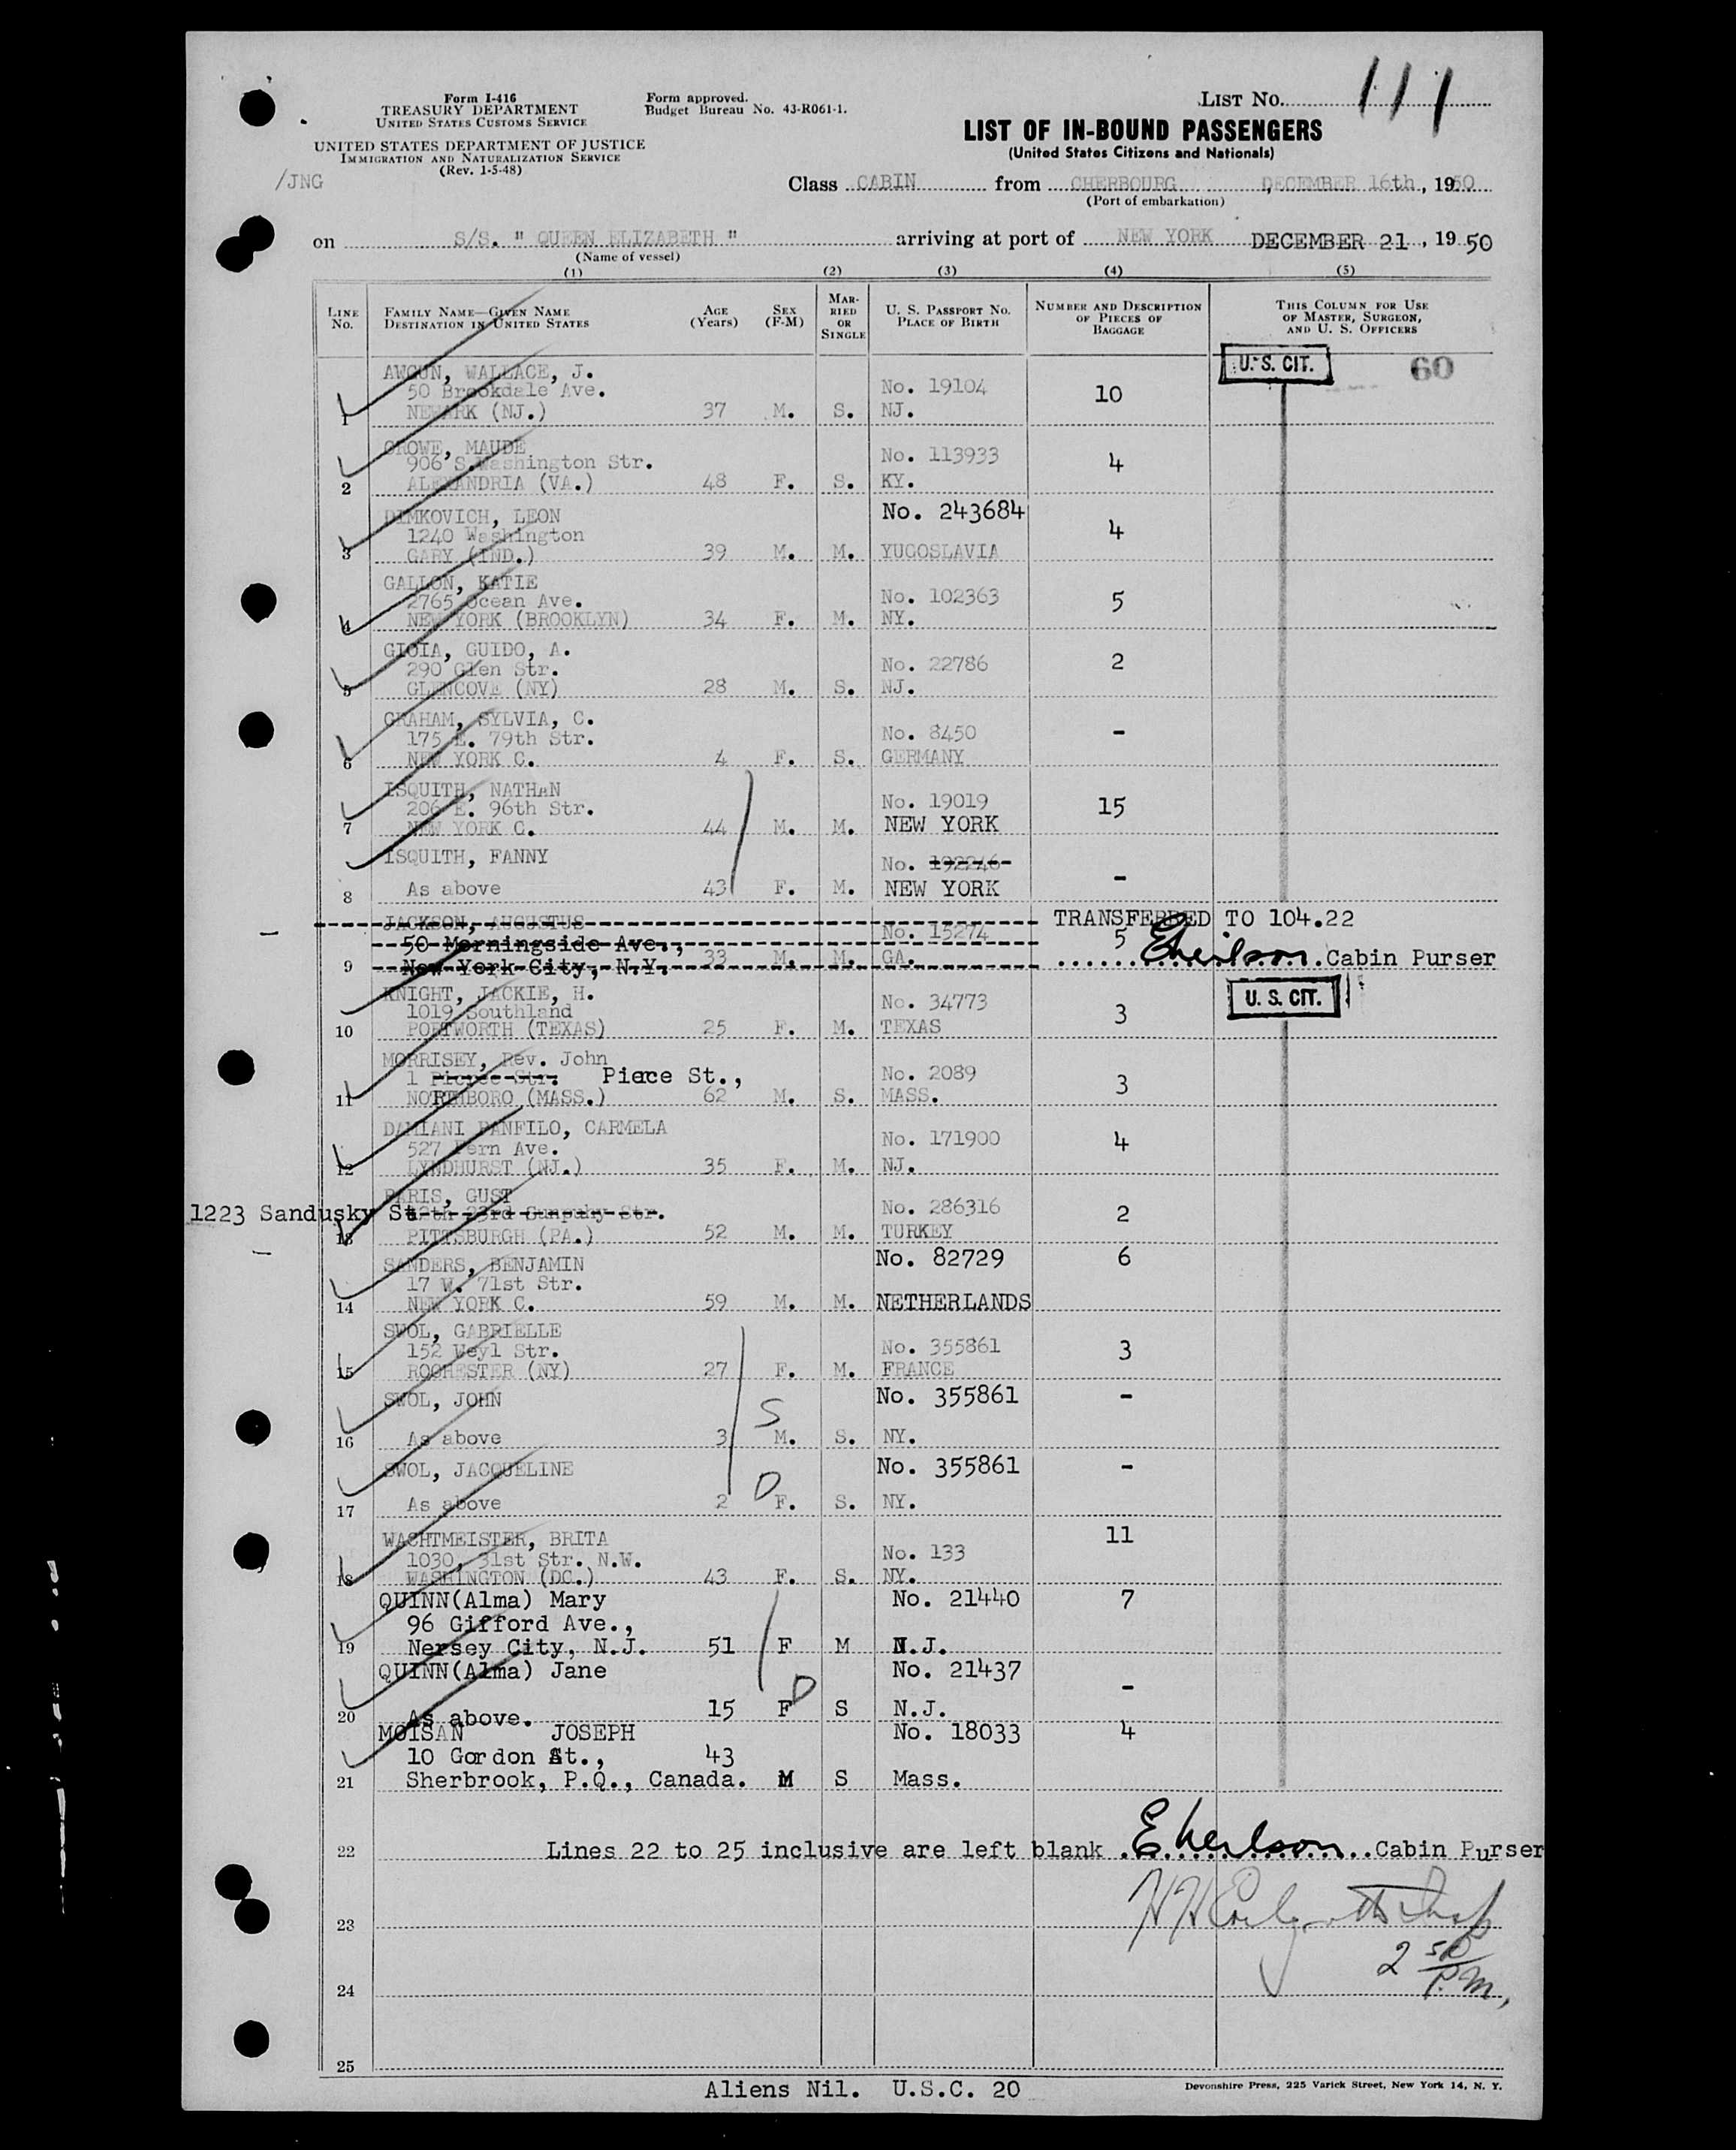 Form I-416
TREASURY DEPARTMENT
UNITED STATES CUSTOMS SERVICE
UNITED STATES DEPARTMENT OF JUSTICE
IMMIGRATION AND NATURALIZATION SERVICE
(Rev. 1-5-48)
/JNG
Form approved.
Budget Bureau No. 43-R061-1.
LIST No. 111
LIST OF IN-BOUND PASSENGERS
(United States Citizens and Nationals)
Class CABIN from CHERBOURG, DECEMBER 16th, 1950
(Port of embarkation)
on S/S. " QUEEN ELIZABETH " arriving at port of NEW YORK DECEMBER 21, 19 50
(Name of vessel)
(1) (2) (3) (4) (5)
LINE No.
FAMILY NAME—GIVEN NAME
DESTINATION IN UNITED STATES
AGE (Years)
SEX (F-M)
MARRIED OR SINGLE
U. S. PASSPORT No.
PLACE OF BIRTH
NUMBER AND DESCRIPTION OF PIECES OF BAGGAGE
THIS COLUMN FOR USE OF MASTER, SURGEON, AND U. S. OFFICERS
U. S. CIT. 60
AWGUN, WALLACE, J.
50 Brookdale Ave. No. 19104 10
1 NEWARK (NJ.) 37 M. S. NJ.
CROWE, MAUDE
906 S.Washington Str. No. 113933 4
2 ALEXANDRIA (VA.) 48 F. S. KY.
DIMKOVICH, LEON No. 243684
1240 Washington 4
3 GARY (IND.) 39 M. M. YUGOSLAVIA
GALLON, KATIE
2765 Ocean Ave. No. 102363 5
4 NEW YORK (BROOKLYN) 34 F. M. NY.
GIOIA, GUIDO, A.
290 Glen Str. No. 22786 2
5 GLENCOVE (NY) 28 M. S. NJ.
GRAHAM, SYLVIA, C.
175 E. 79th Str. No. 8450 -
6 NEW YORK C. 4 F. S. GERMANY
ISQUITH, NATHAN
206 E. 96th Str. No. 19019 15
7 NEW YORK C. 44 M. M. NEW YORK
ISQUITH, FANNY No. 192246 -
8 As above 43 F. M. NEW YORK
JACKSON, AUGUSTUS TRANSFERRED TO 104.22
50 Morningside Ave., No. 15274 5
9 New York City, N.Y. 33 M. M. GA. Cabin Purser
KNIGHT, JACKIE, H. U. S. CIT.
1019 Southland No. 34773 3
10 FORTWORTH (TEXAS) 25 F. M. TEXAS
MORRISEY, Rev. John
1 Pierce St., No. 2089 3
11 NORTHBORO (MASS.) 62 M. S. MASS.
DAMIANI PANFILO, CARMELA
527 Fern Ave. No. 171900 4
12 LYNDHURST (NJ.) 35 F. M. NJ.
PARIS, GUST
1223 Sandusky St No. 286316 2
13 PITTSBURGH (PA.) 52 M. M. TURKEY
SANDERS, BENJAMIN No. 82729 6
17 W. 71st Str.
14 NEW YORK C. 59 M. M. NETHERLANDS
SWOL, GABRIELLE
152 Weyl Str. No. 355861 3
15 ROCHESTER (NY) 27 F. M. FRANCE
SWOL, JOHN No. 355861 -
S
16 As above 3 M. S. NY.
SWOL, JACQUELINE No. 355861 -
D
17 As above 2 F. S. NY.
WACHTMEISTER, BRITA 11
1030, 31st Str. N.W. No. 133
18 WASHINGTON (DC.) 43 F. S. NY.
QUINN(Alma) Mary No. 21440 7
96 Gifford Ave.,
19 Nersey City, N.J. 51 F M N.J.
QUINN(Alma) Jane No. 21437 -
D
20 As above. 15 F S N.J.
MOISAN JOSEPH No. 18033 4
10 Gordon St., 43
21 Sherbrook, P.Q., Canada. M S Mass.
22 Lines 22 to 25 inclusive are left blank Cabin Purser
23
2 50 P.M,
24
25
Aliens Nil. U.S.C. 20
Devonshire Press, 225 Varick Street, New York 14, N. Y.